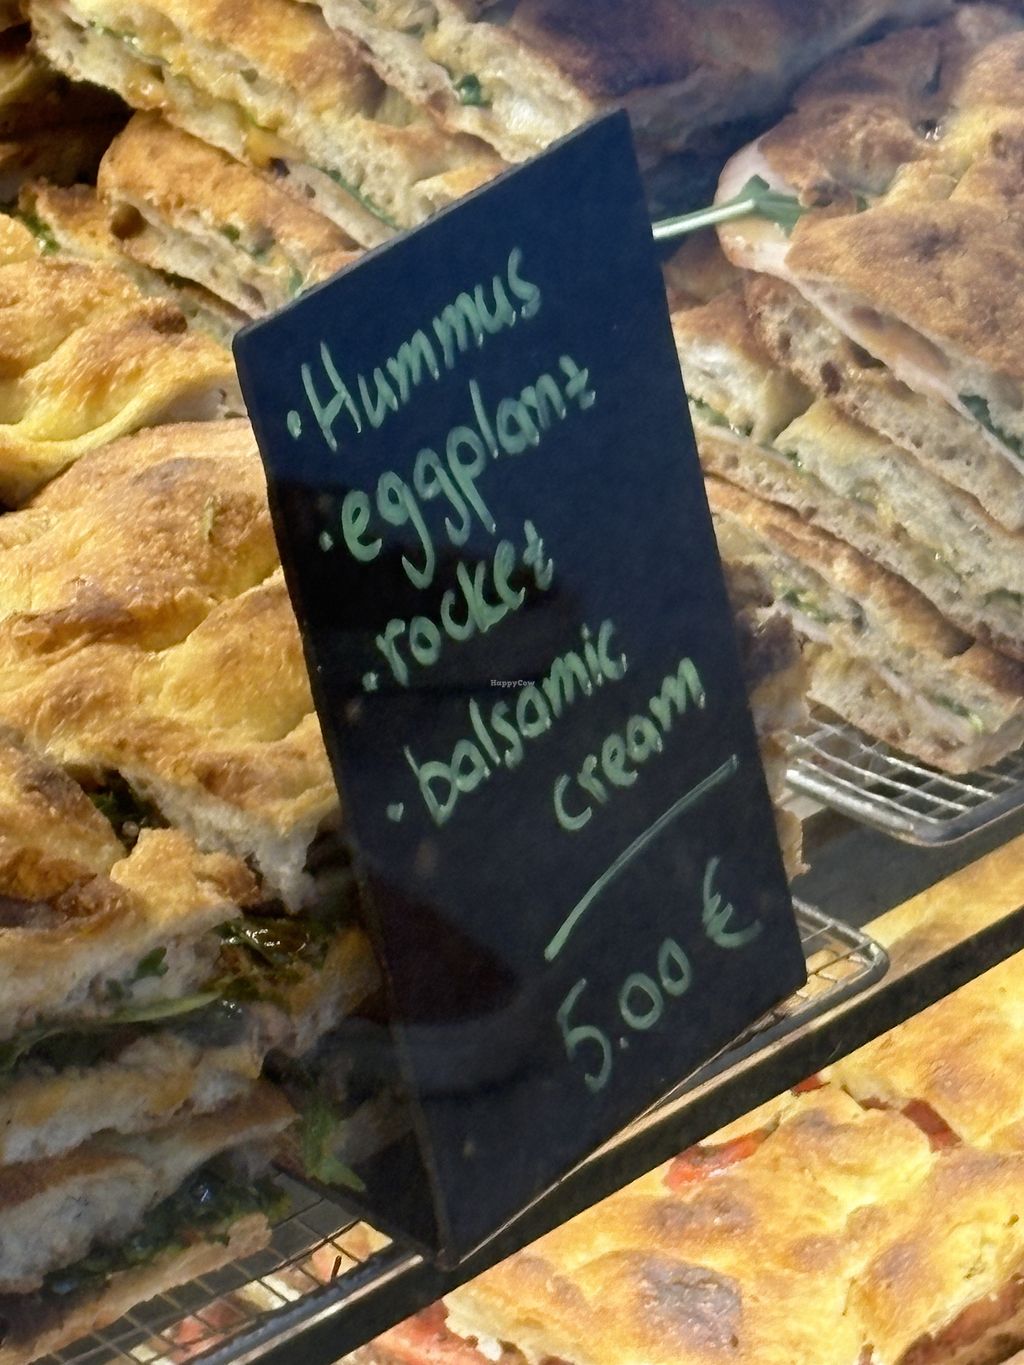 · Hummus
· eggplant
· rocket
· balsamic
cream
5.00 €
HappyCow